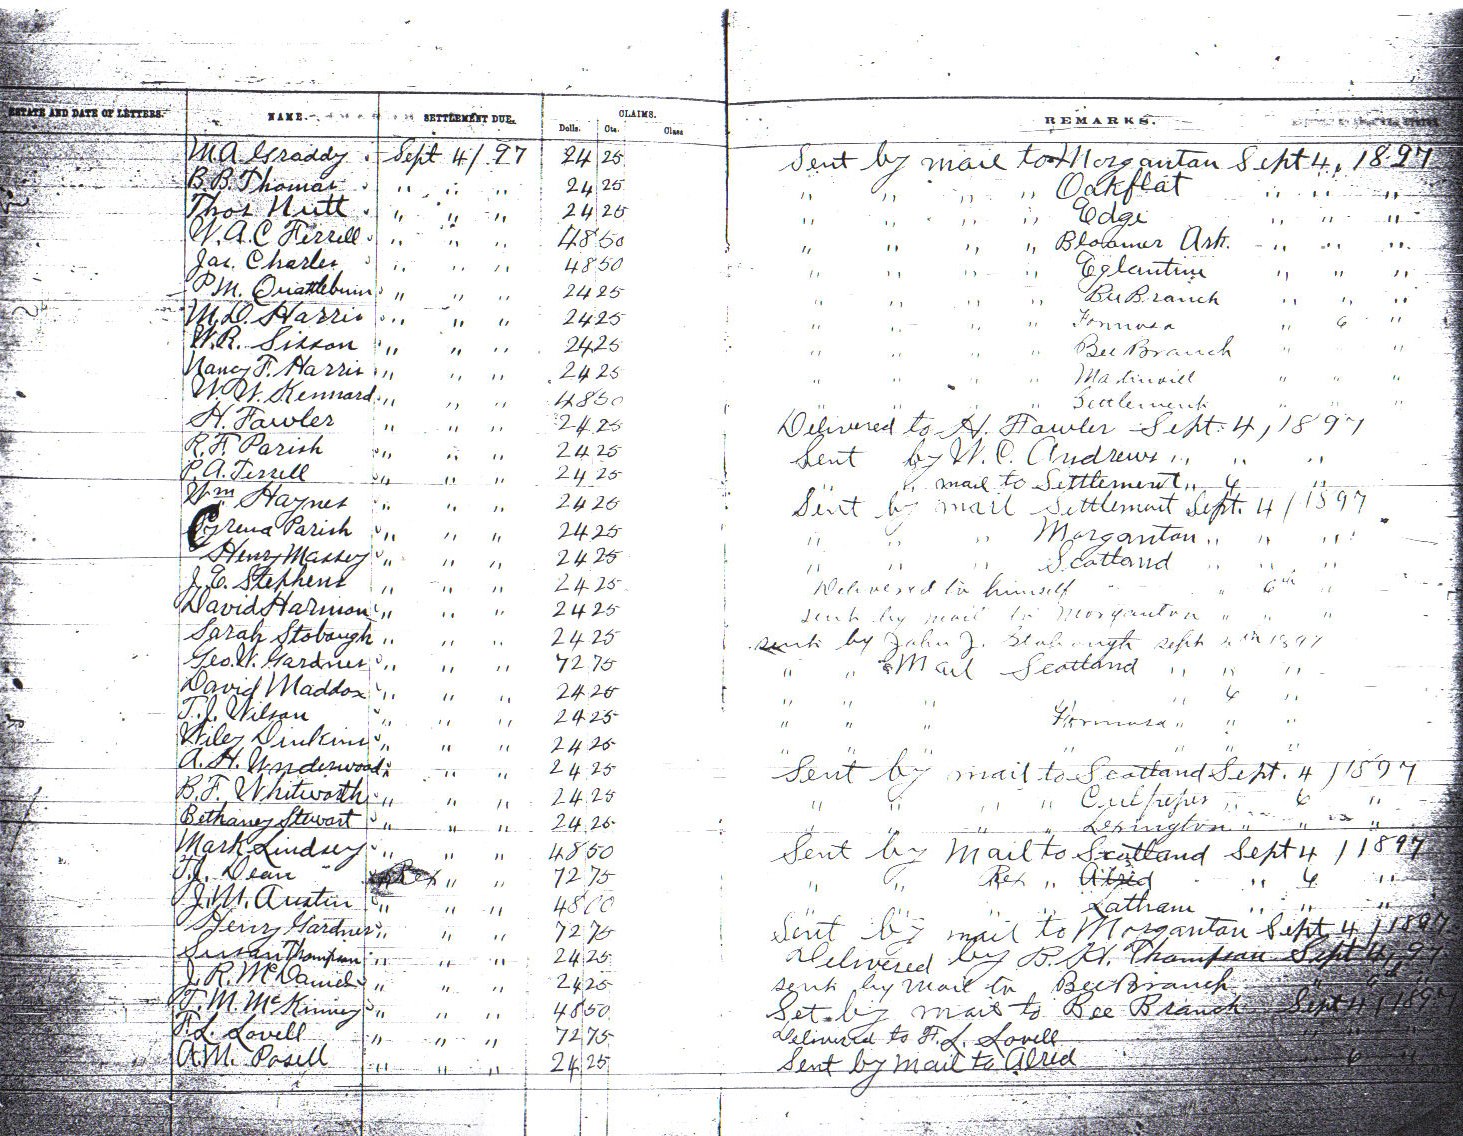 ESTATE AND DATE OF LETTERS. NAME. SETTLEMENT DUE. CLAIMS. REMARKS.
Dolls. Cts. Class
M.A. Graddy Sept 4/97 24 25 Sent by mail to Morgantan Sept 4, 1897
B.B. Thomas " " " 24 25 " " " " Oakflat " " "
Thos Nutt " " " 24 25 " " " " Edge " " "
W.A.C Ferrell " " " 48 50 " " " " Bloomer Ark. " " "
Jas. Charles " " " 48 50 " " " " Eglantine " " "
P.M. Quattlebum " " " 24 25 " " " " Bee Branch " " "
M.D. Harris " " " 24 25 " " " " Formosa " 6 "
W.R. Sisson " " " 24 25 " " " " Bee Branch " " "
Nancy F. Harris " " " 24 25 " " " " " " "
W.W. Kennard " " " 48 50 " " " " Settlement " " "
H. Fawler " " " 24 25 Delivered to H. Fawler Sept. 4, 1897
R.F. Parish " " " 24 25 Sent by W.C. Andrews " " "
P.A. Terrell " " " 24 25 " " mail to Settlement " 4 "
Wm Haynes " " " 24 25 Sent by mail Settlemart Sept. 4/1897
Cyrena Parish " " " 24 25 " " " Morganton " " "
Henry Massey " " " 24 25 " " " Scotland " " "
J.E. Stephens " " " 24 25 Delivered to himself " 6th "
David Harmon " " " 24 25 sent by mail to Morganton " " "
Sarah Stobaugh " " " 24 25 sent by John J. Stobaugh sept 1897
Geo. W. Gardner " " " 72 75 " " Mail Scotland " " "
David Maddox " " " 24 25 " " " " 6 "
T.J. Wilson " " " 24 25 " " " Formosa " " "
Wiley Dinkins " " " 24 25 " " " " " " "
A.H. Underwood " " " 24 25 Sent by mail to Scotland Sept. 4/1897
B.F. Whitworth " " " 24 25 " " " " Culpeper " 6 "
Bethaney Stewart " " " 24 25 " " " " Lexington " " "
Mark Lindsey " " " 48 50 Sent by Mail to Scotland Sept 4/1897
T.J. Dean " " 72 75 " " " Alred " 6 "
J.M. Austin " " " 48 00 " " " " Latham " " "
Henry Gardner " " " 72 75 Sent by mail to Morgantan Sept 4/1897
Susan Thompson " " " 24 25 Delivered by B.H. Thompson Sept 4, 97
J.R. McDaniel " " " 24 25 sent by mail to Bee Branch " "
T.M. McKinney " " " 48 50 Set by mail to Bee Branch Sept 4/1897
F.L. Lovell " " " 72 75 Delivered to F.L. Lovell " " "
A.M. Posell " " " 24 25 Sent by mail to Alred " 6 "